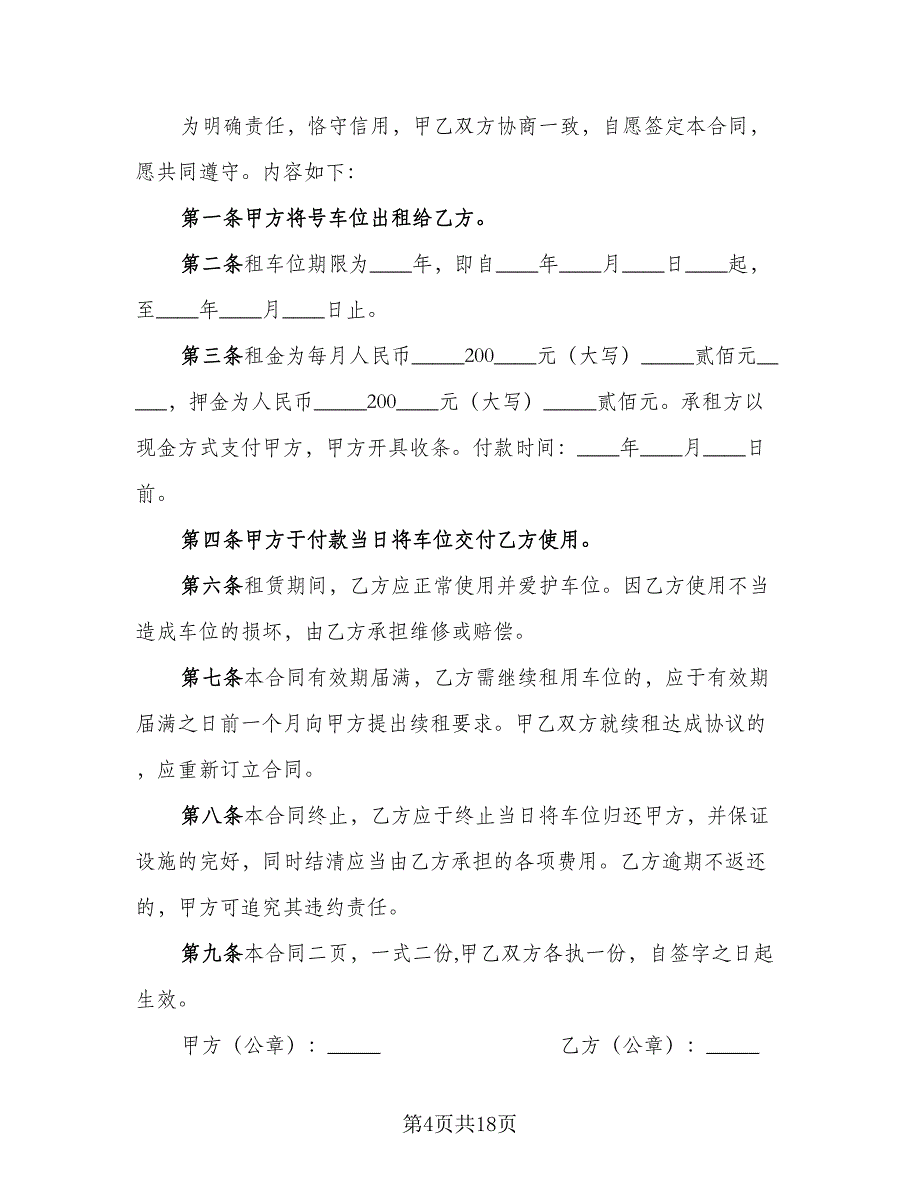 为明确责任，恪守信用，甲乙双方协商一致，自愿签定本合同，
愿共同遵守。内容如下：
第一条甲方将号车位出租给乙方。
第二条租车位期限为____年，即自____年____月____日____起，
至____年____月____日止。
第三条租金为每月人民币_____200____元（大写）_____贰佰元__
___，押金为人民币_____200____元（大写）_____贰佰元。承租方以
现金方式支付甲方，甲方开具收条。付款时间：____年____月____日
前。
第四条甲方于付款当日将车位交付乙方使用。
第六条租赁期间，乙方应正常使用并爱护车位。因乙方使用不当
造成车位的损坏，由乙方承担维修或赔偿。
第七条本合同有效期届满，乙方需继续租用车位的，应于有效期
届满之日前一个月向甲方提出续租要求。甲乙双方就续租达成协议的
，应重新订立合同。
第八条本合同终止，乙方应于终止当日将车位归还甲方，并保证
设施的完好，同时结清应当由乙方承担的各项费用。乙方逾期不返还
的，甲方可追究其违约责任。
第九条本合同二页，一式二份,甲乙双方各执一份，自签字之日起
生效。
甲方（公章）：_____ 乙方（公章）：_____
第4页共18页